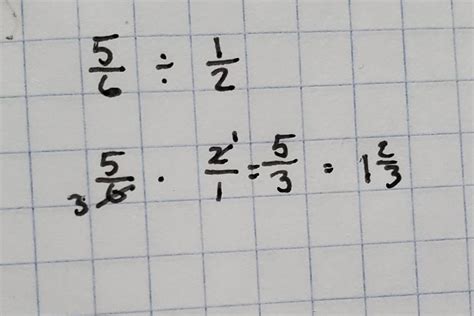 5/6 ÷ 1/2
3 5/6 · 2 1/1 = 5/3 = 1 2/3